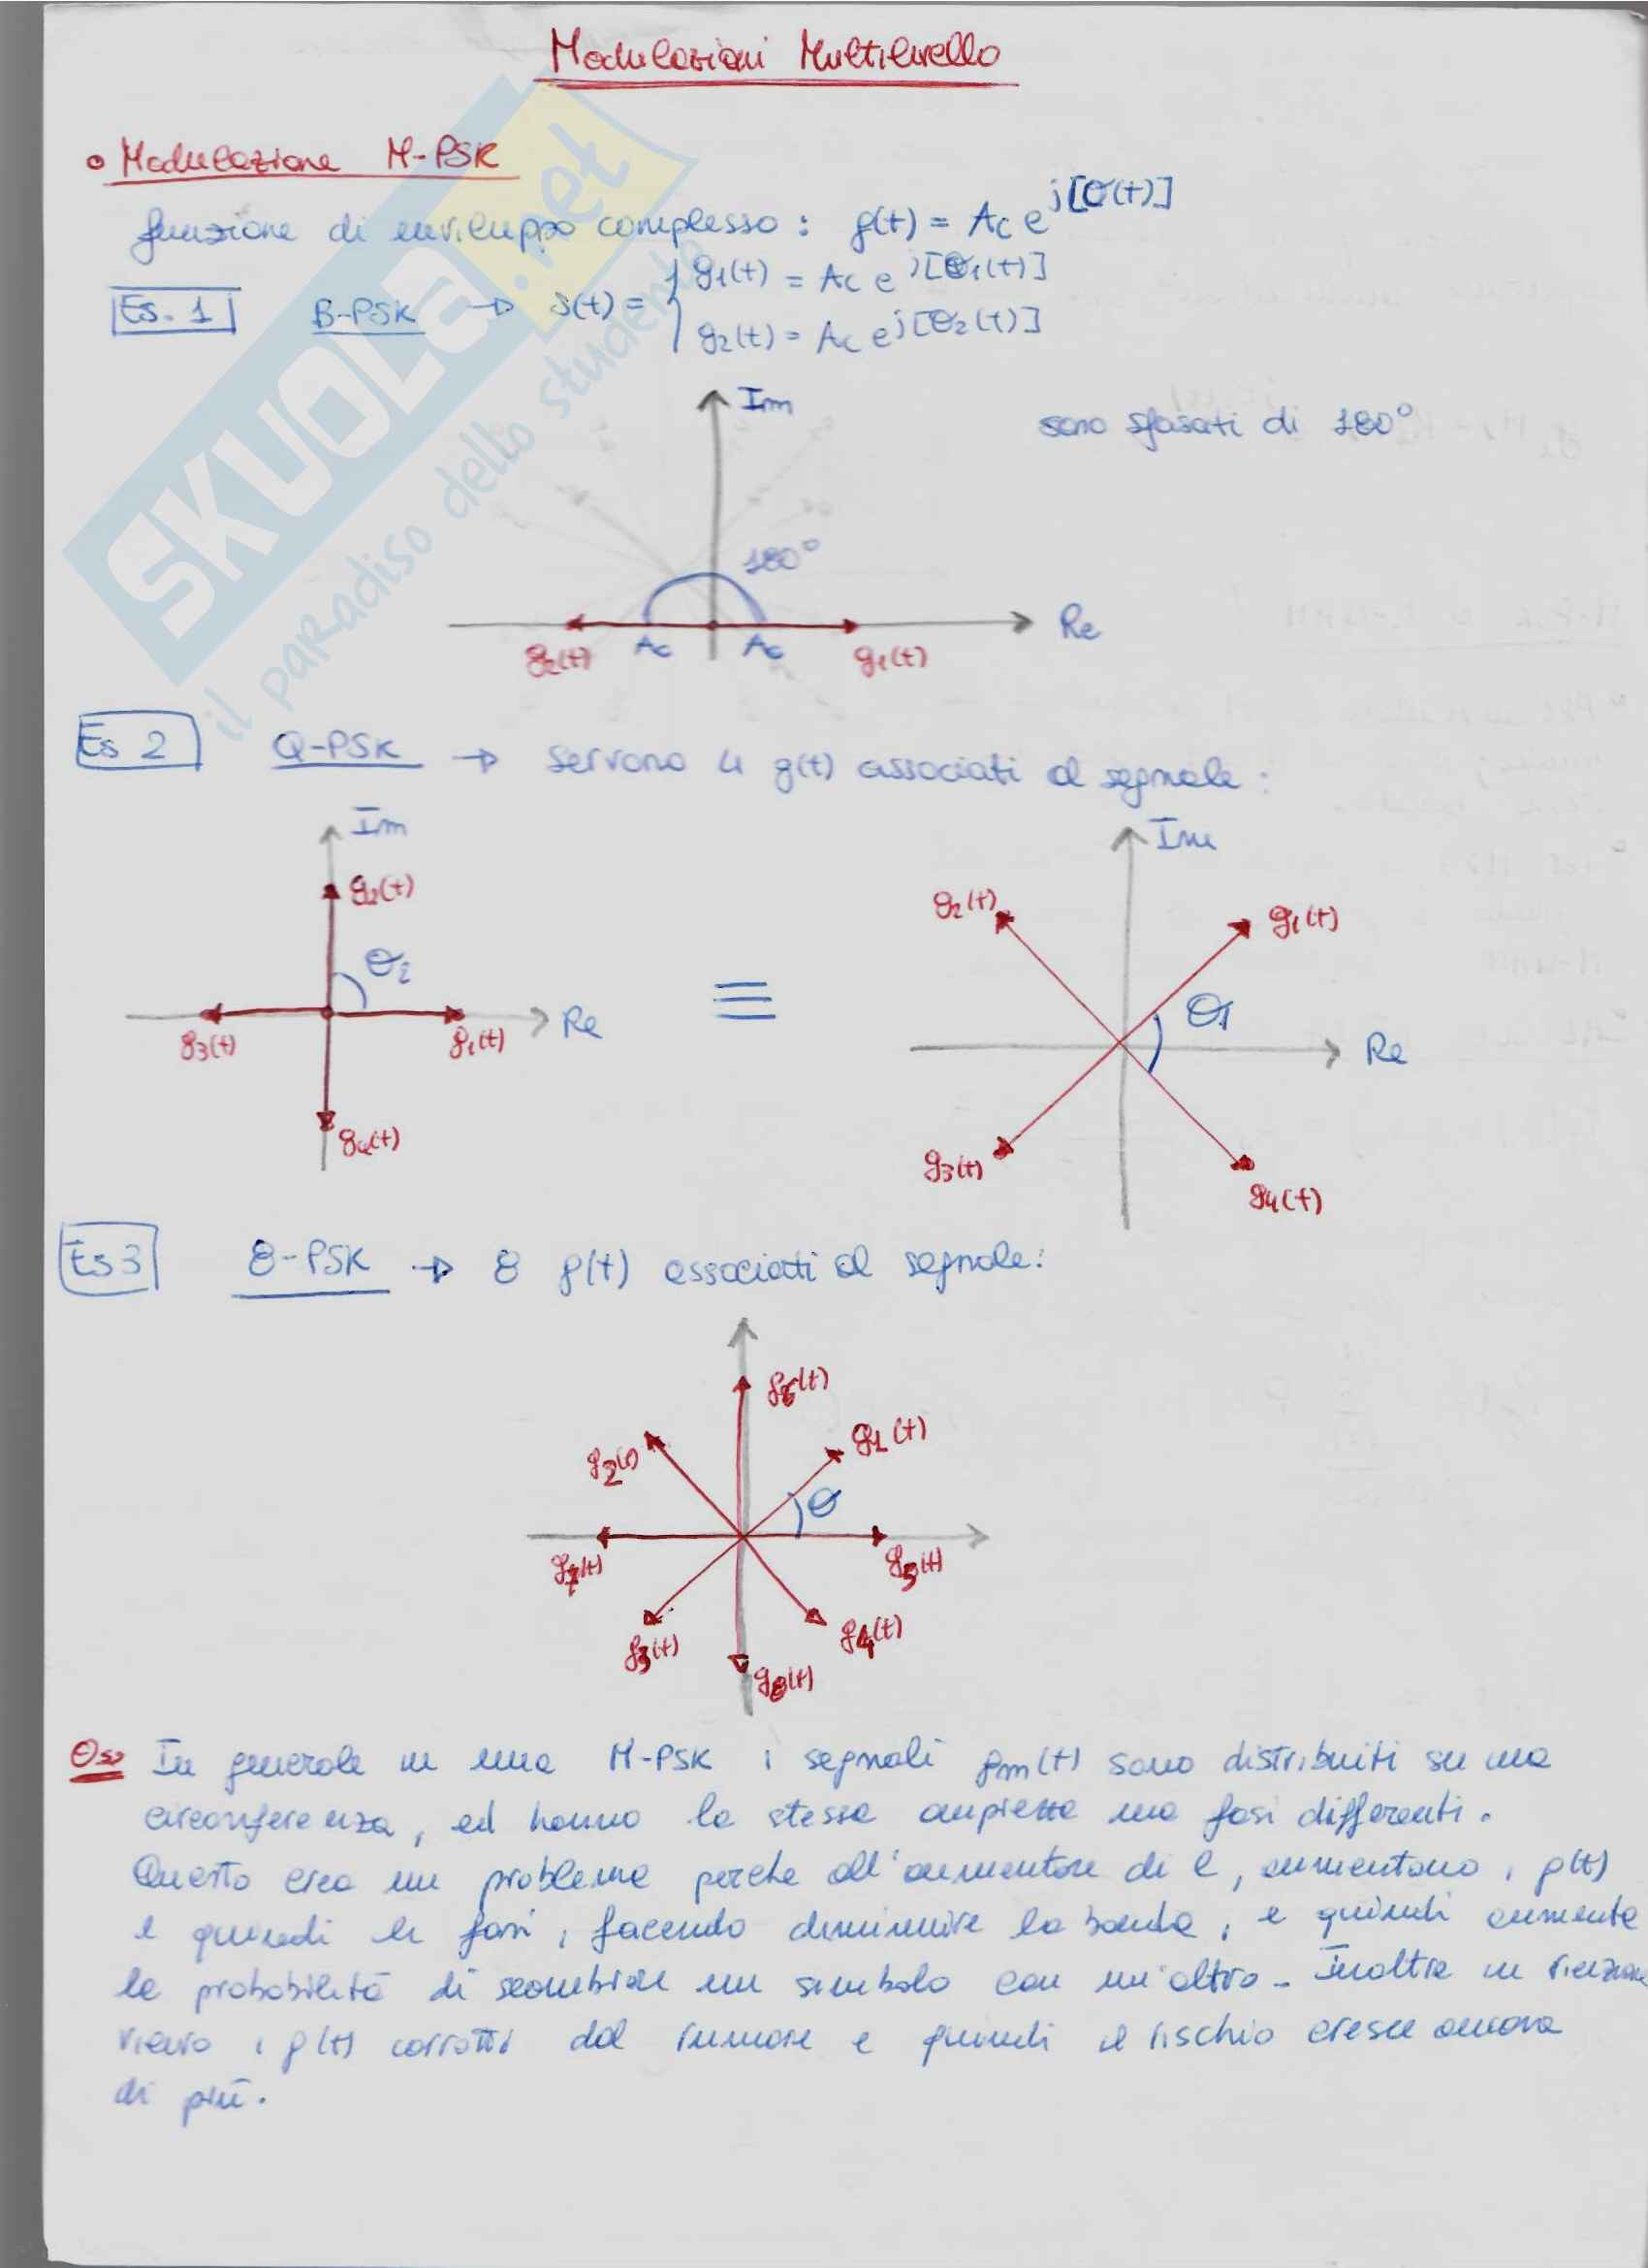 Modulazioni Multilivello
• Modulazione M-PSK
funzione di inviluppo complesso : g(t) = Ac e^j[θ(t)]
Es. 1 B-PSK → s(t) = { g1(t) = Ac e^j[θ1(t)]
g2(t) = Ac e^j[θ2(t)]
Im
sono sfasati di 180°
180°
Re
g2(t) Ac Ac g1(t)
Es 2 Q-PSK → servono 4 g(t) associati al segnale :
Im
g2(t)
θi
Re
g3(t) g1(t)
g4(t)
≡
Im
g2(t) g1(t)
θ1
Re
g3(t)
g4(t)
Es 3 8-PSK → 8 g(t) associati al segnale:
g6(t)
g1(t)
g2(t)
θ
g7(t) g5(t)
g3(t) g4(t)
g8(t)
Oss In generale in una M-PSK i segnali gm(t) sono distribuiti su una
circonferenza, ed hanno la stessa ampiezza ma fasi differenti.
Questo crea un problema perche all'aumentare di l, aumentano i g(t)
e quindi le fasi, facendo diminuire la banda, e quindi aumenta
la probabilità di scambiare un simbolo con un'altro. Inoltre in ricezione
ricevo i g(t) corrotti dal rumore e quindi il rischio cresce ancora
di più.
SKUOLA.net
il paradiso dello studente